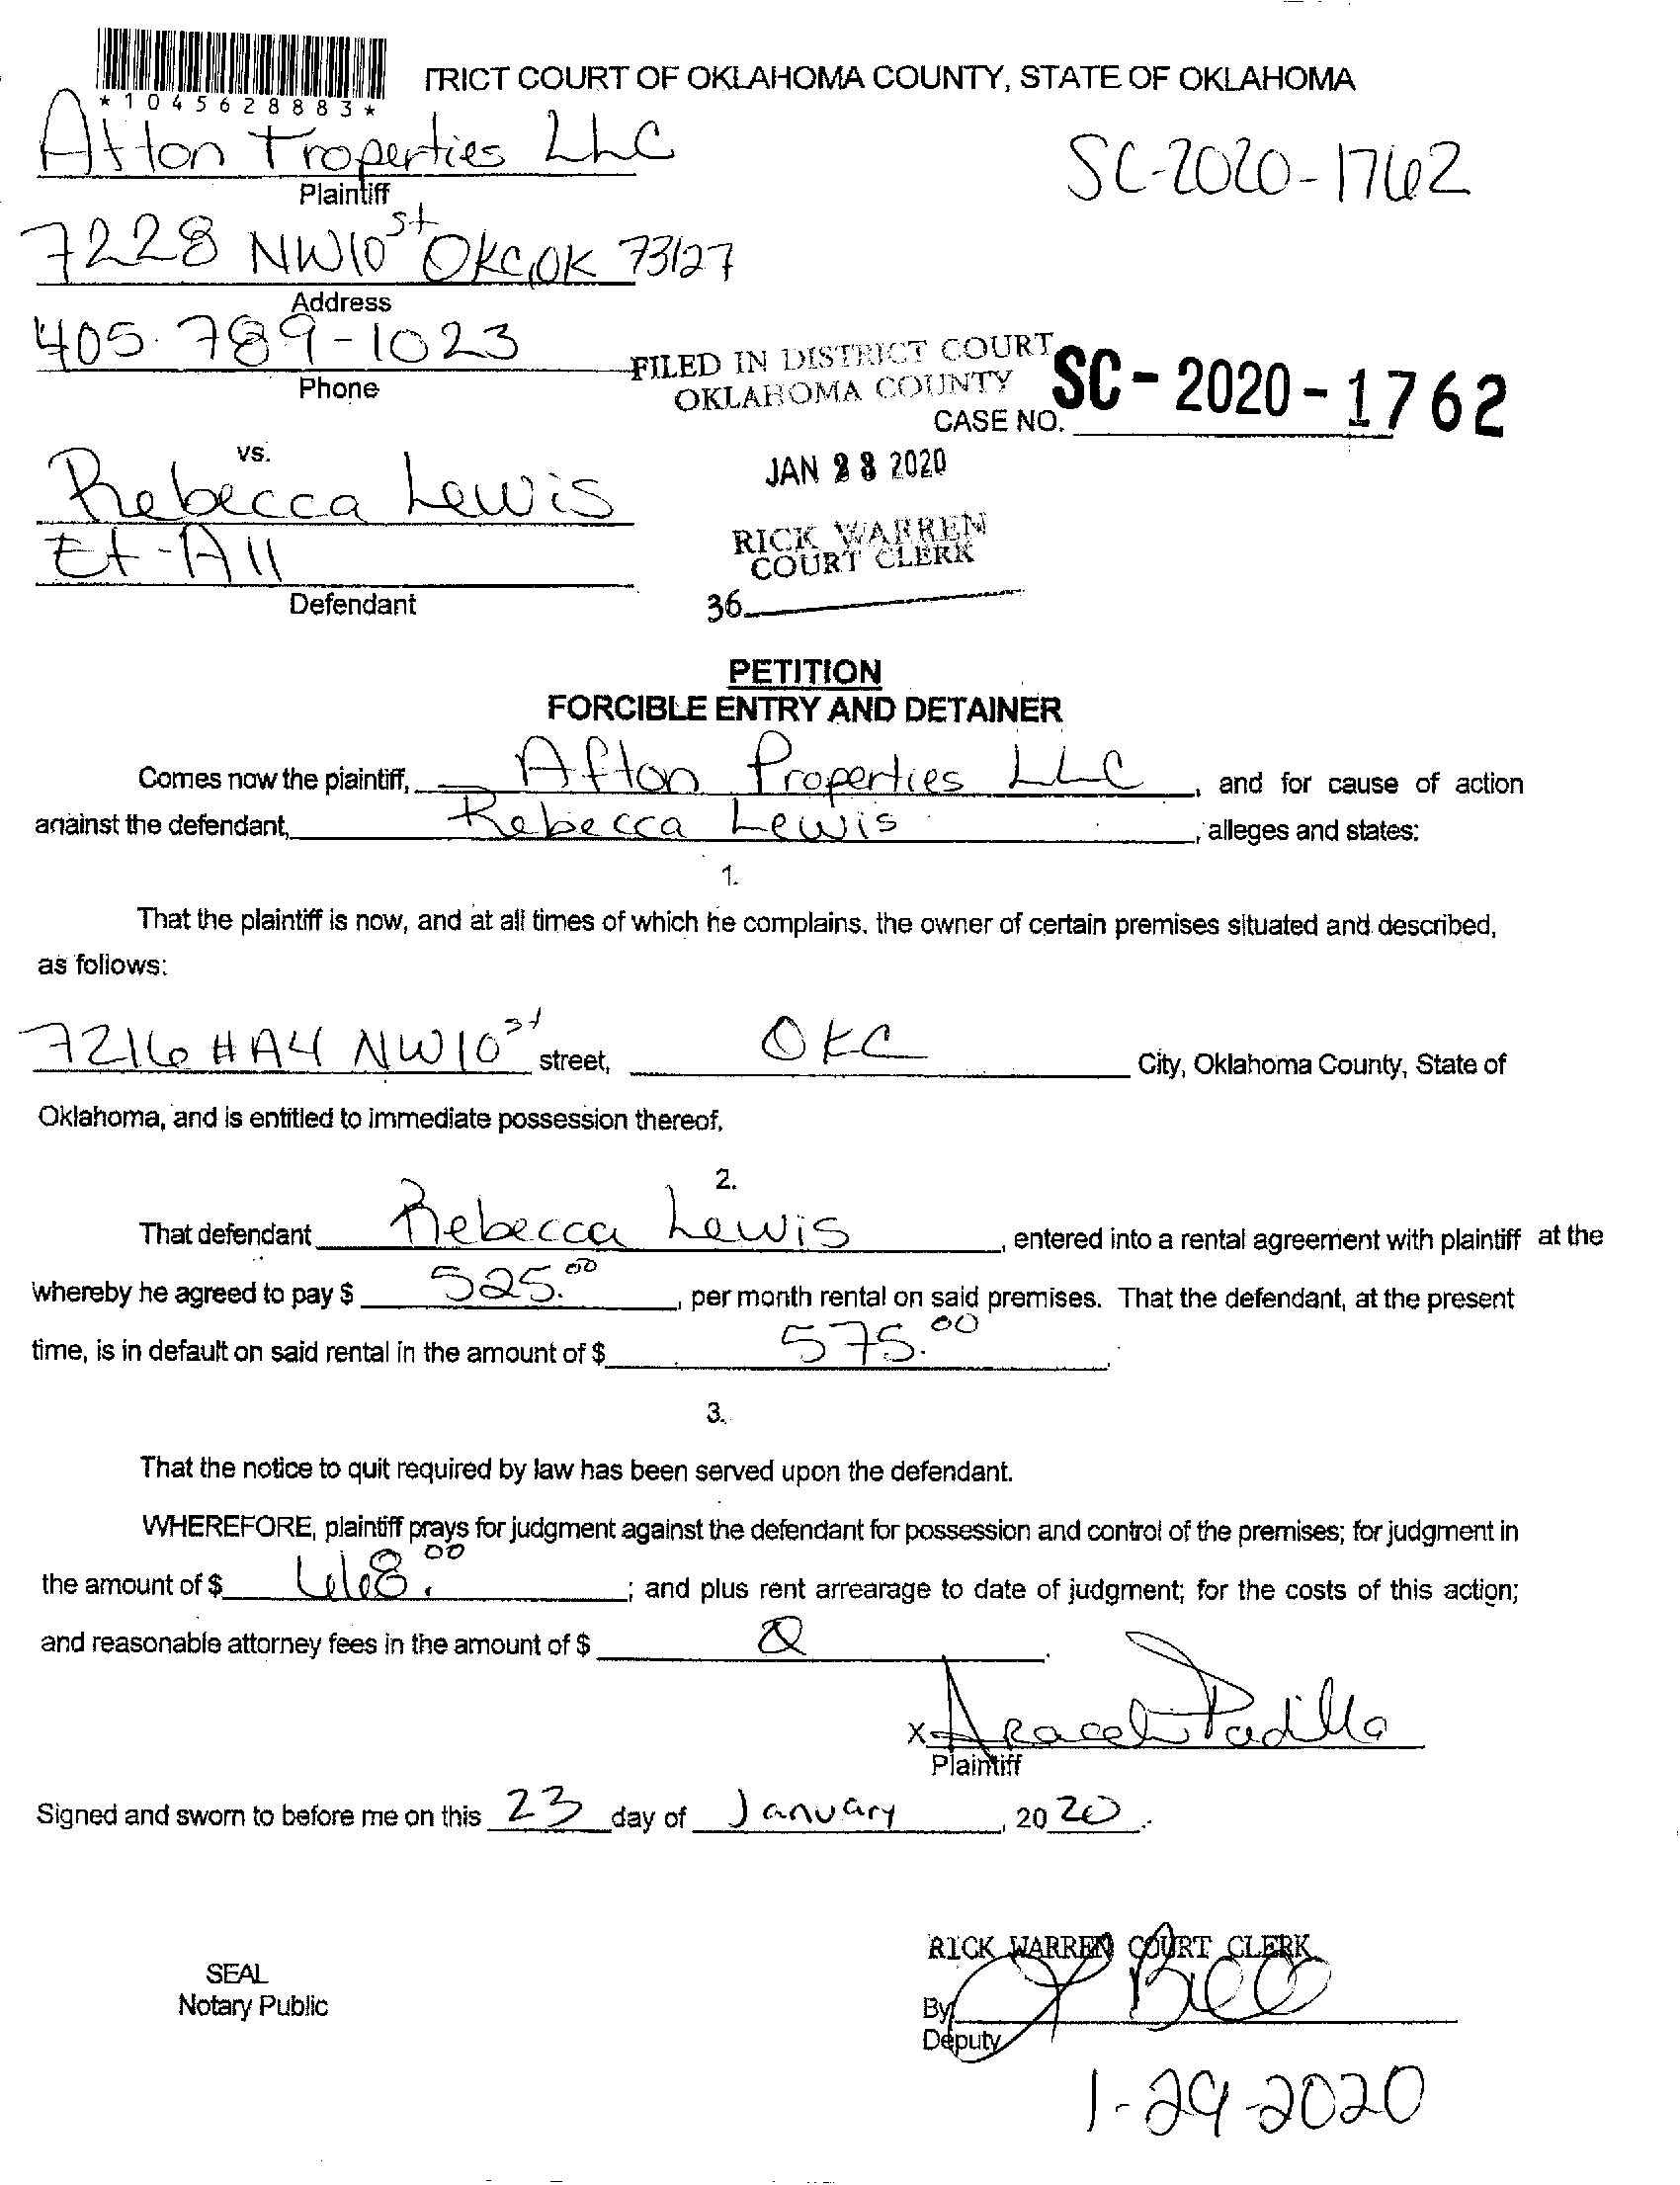 *1045628883*
TRICT COURT OF OKLAHOMA COUNTY, STATE OF OKLAHOMA
Afton Properties LLC
Plaintiff
SC-2020-1762
7228 NW 10st OKC, OK 73127
Address
405.789-1023
Phone
FILED IN DISTRICT COURT
OKLAHOMA COUNTY
CASE NO. SC-2020-1762
vs.
JAN 23 2020
Rebecca Lewis
Et-All
Defendant
RICK WARREN
COURT CLERK
36
PETITION
FORCIBLE ENTRY AND DETAINER
Comes now the plaintiff, Afton Properties LLC, and for cause of action
against the defendant, Rebecca Lewis, alleges and states:
1.
That the plaintiff is now, and at all times of which he complains, the owner of certain premises situated and described,
as follows:
7216 #A4 NW 10st street, OKC City, Oklahoma County, State of
Oklahoma, and is entitled to immediate possession thereof.
2.
That defendant Rebecca Lewis, entered into a rental agreement with plaintiff at the
whereby he agreed to pay $ 525.00, per month rental on said premises. That the defendant, at the present
time, is in default on said rental in the amount of $ 575.00.
3.
That the notice to quit required by law has been served upon the defendant.
WHEREFORE, plaintiff prays for judgment against the defendant for possession and control of the premises; for judgment in
the amount of $ 668.00; and plus rent arrearage to date of judgment; for the costs of this action;
and reasonable attorney fees in the amount of $ 0.
X Araceli Padilla
Plaintiff
Signed and sworn to before me on this 23 day of January, 2020.
SEAL
Notary Public
RICK WARREN COURT CLERK
By
Deputy
1-29-2020